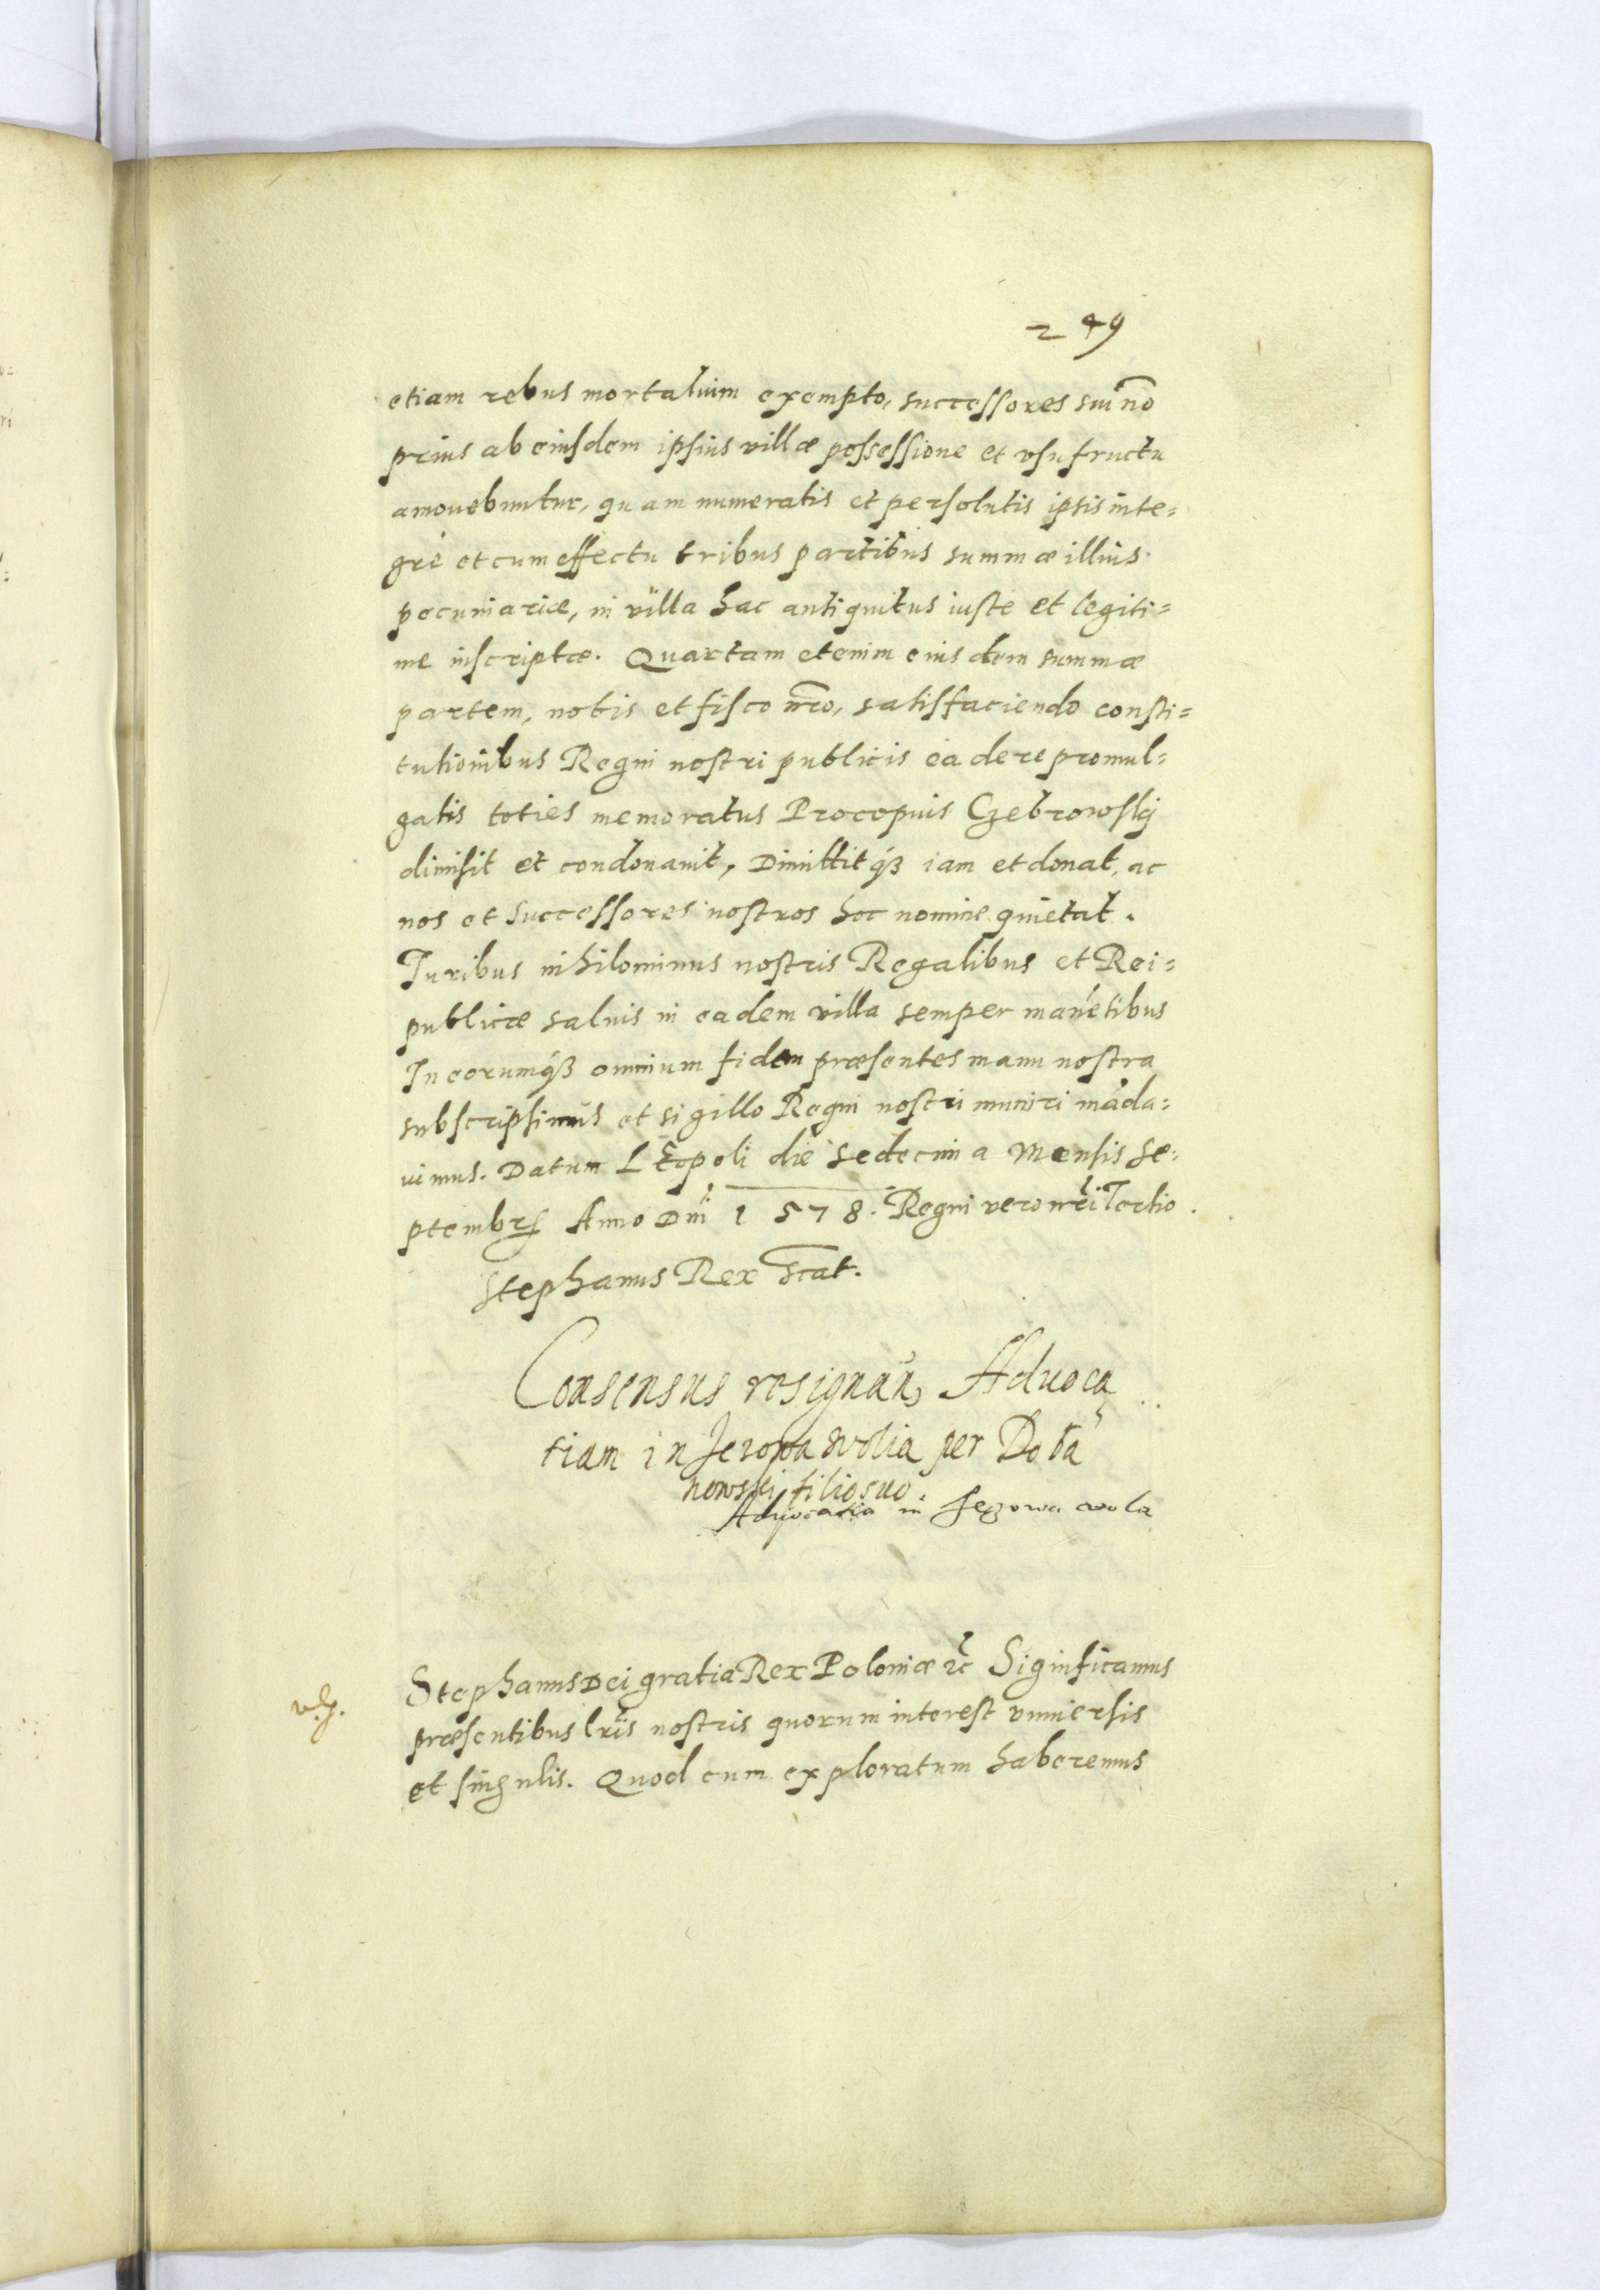 249
etiam rebus mortalium exempto, successores sui nō
prius ab eiusdem ipsius villæ possessione et vsufructu
amouebuntur, quam numeratis et persolutis ipsis inte=
gre et cum effectu tribus partibus summæ illius
pecuniariæ, in villa hac antiquitus iuste et legiti=
me inscriptæ. Quartam etenim eiusdem summæ
partem, nobis et fisco nr̄o, satisfaciendo consti=
tutionibus Regni nostri publicis ea de re promul=
gatis toties memoratus Procopius Czebrowskij
dimisit et condonauit, Dimittitqꝫ iam et donat, ac
nos et Successores nostros hoc nomine quietat.
Iuribus nihilominus nostris Regalibus et Rei=
publicæ saluis in eadem villa semper manētibus
In eorumqꝫ omnium fidem præsentes manu nostra
subscripsimus et sigillo Regni nostri muniri māda=
uimus. Datum LEopoli die sedecima Mensis Se=
ptembrꝭ Anno Dni̅ 1578. Regni vero nr̄i Tertio.
Stephanus Rex sc̄at.
Consensus resignan̄ Aduoca
tiam in Jezowa wolia per Doba
nowski filio suo.
Aduocatia in Jezowa wola
Stephanus Dei gratia Rex Poloniæ ꝛc̄ Significamus
præsentibus lr̄is nostris quorum interest vniuersis
et singulis. Quod cum exploratum haberemus